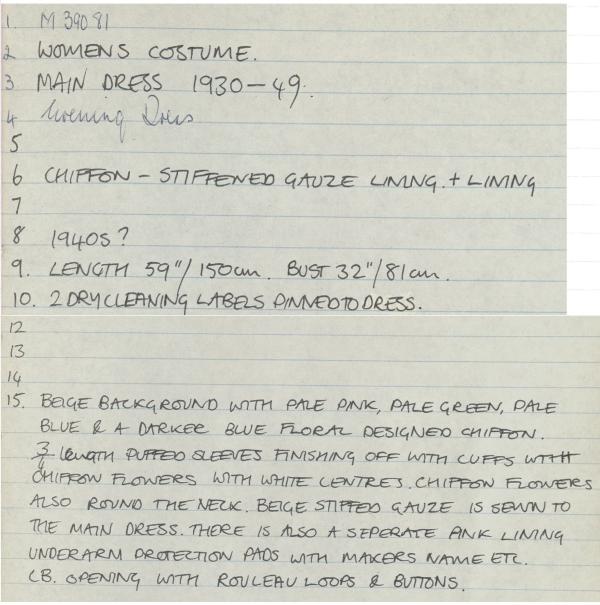 1. M 39081
2 WOMENS COSTUME.
3 MAIN DRESS 1930-49.
4 Evening Dress
5
6 CHIFFON - STIFFENED GAUZE LINING. + LINING
7
8 1940S?
9. LENGTH 59"/150cm. BUST 32"/81cm.
10. 2 DRYCLEANING LABELS PINNED TO DRESS.
12
13
14
15. BEIGE BACKGROUND WITH PALE PINK, PALE GREEN, PALE
BLUE & A DARKER BLUE FLORAL DESIGNED CHIFFON.
3/4 LENGTH PUFFED SLEEVES FINISHING OFF WITH CUFFS WITH
CHIFFON FLOWERS WITH WHITE CENTRES. CHIFFON FLOWERS
ALSO ROUND THE NECK. BEIGE STIFFED GAUZE IS SEWN TO
THE MAIN DRESS. THERE IS ALSO A SEPERATE PINK LINING
UNDERARM PROTECTION PADS WITH MAKERS NAME ETC.
CB. OPENING WITH ROULEAU LOOPS & BUTTONS.